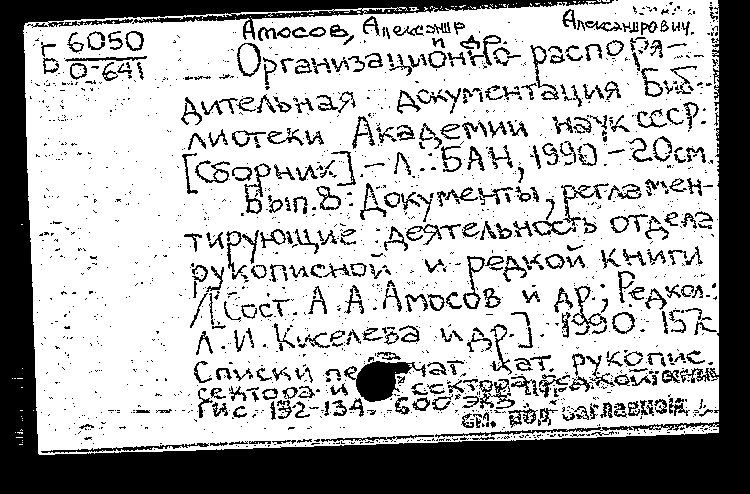 Амосов, Александр Александрович.
Б 6050
0-641
Организационно-распоря-
дительная документация Биб-
лиотеки Академии наук СССР:
[Сборник]. - Л.: БАН, 1990. - 20см.
Вып. 8: Документы, регламен-
тирующие деятельность отдела
рукописной и редкой книги
/[Сост. А.А.Амосов и др.; Редкол.:
Л.И.Киселева и др.]. 1990. 157с.
Списки печат. кат. рукопис.
сектора и сектора редкой
с. 132-134. 600 экз.
см. под заглавной